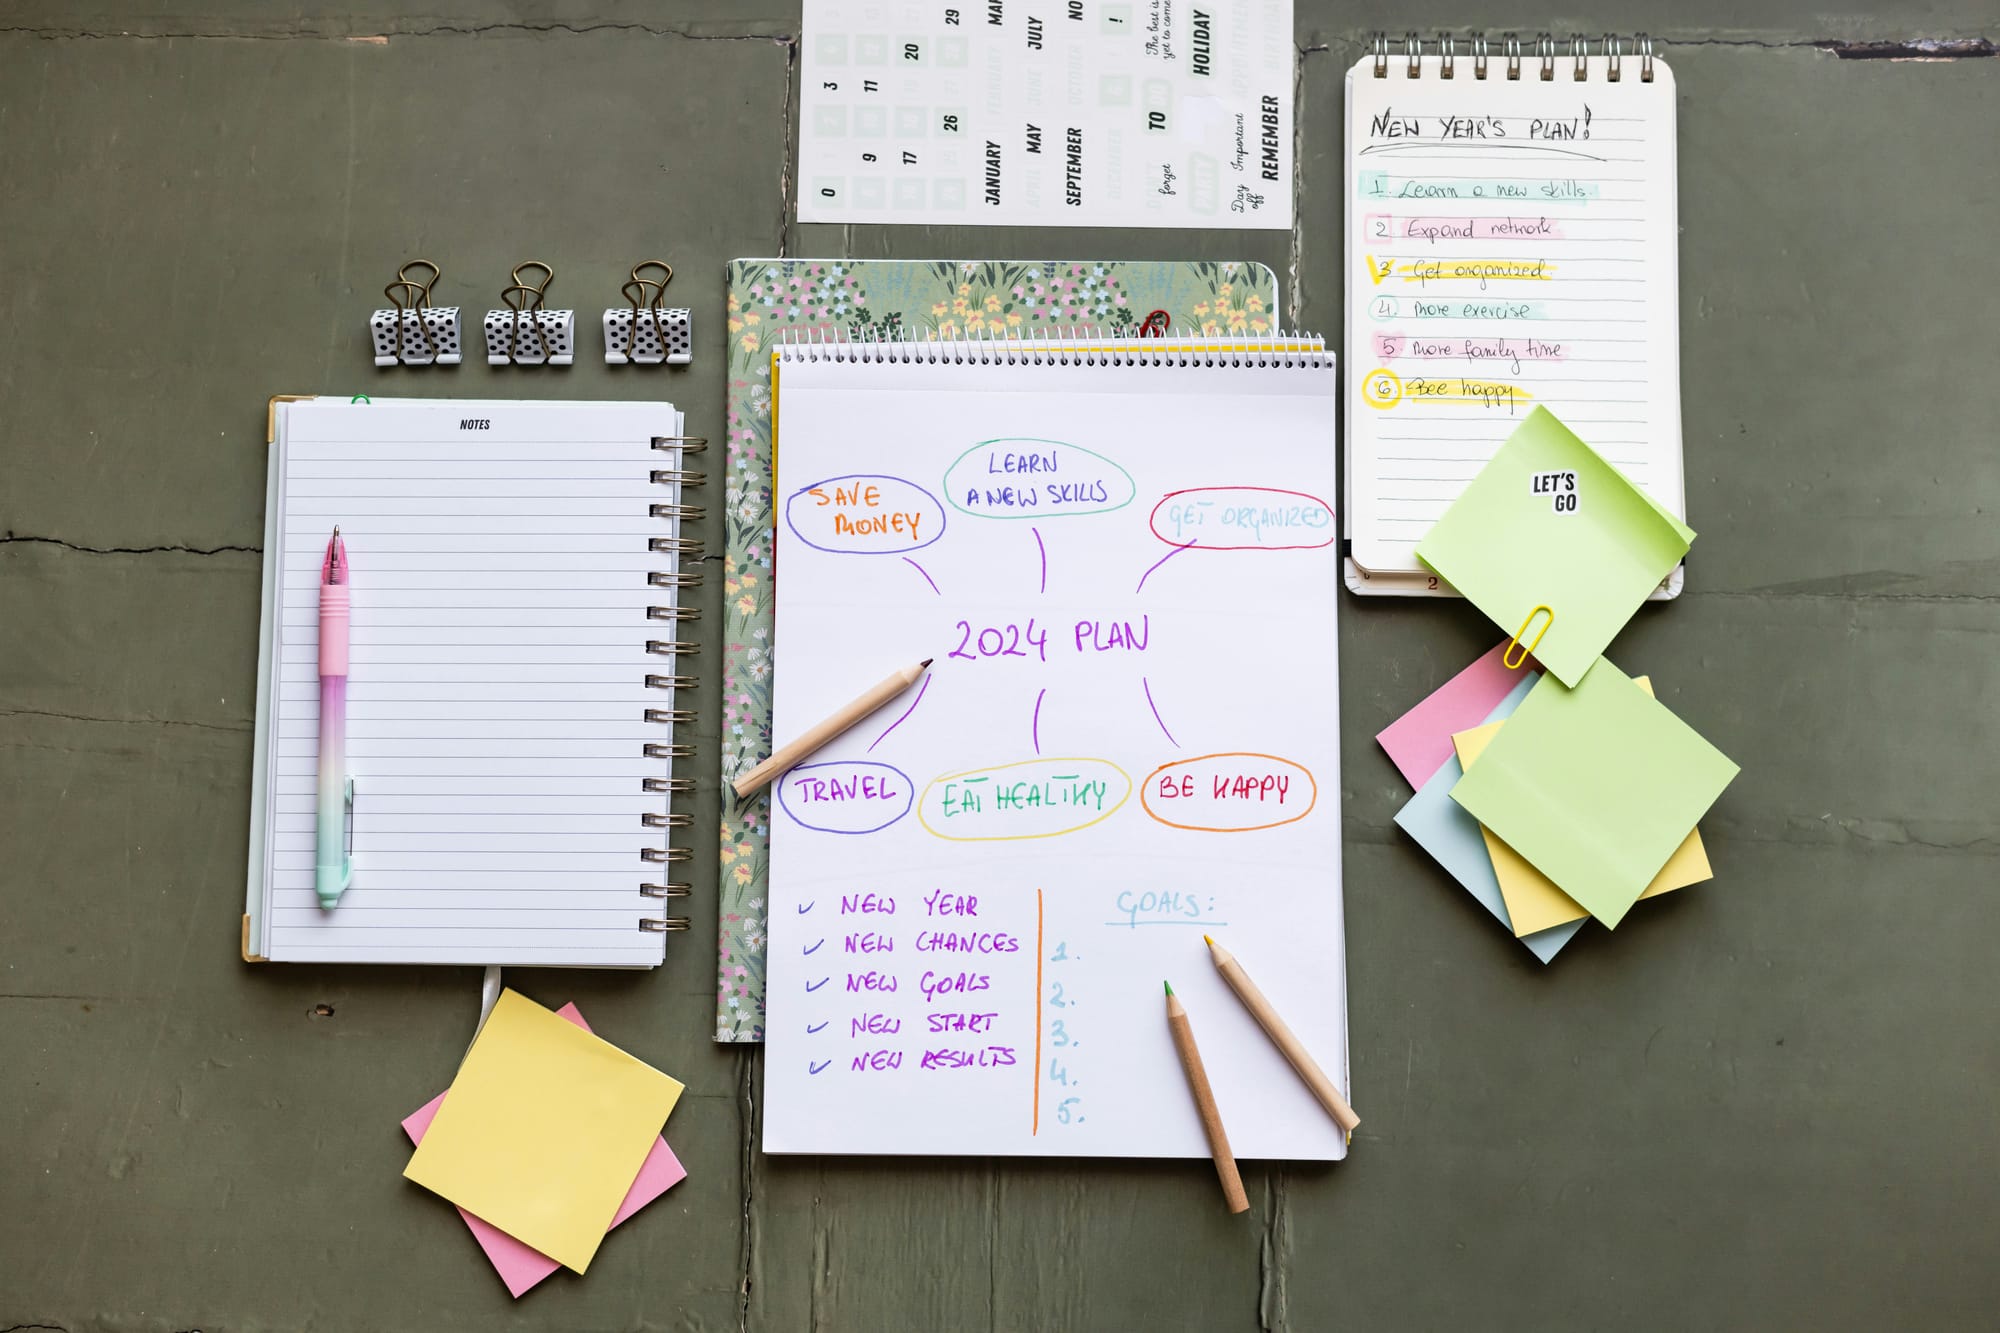 0
3
9
11
17
20
26
29
JANUARY
MAY
JULY
SEPTEMBER
NO
!
The best is
yet to come
TO
forget
HOLIDAY
PARTY
Day
off
Important
REMEMBER
NEW YEAR'S PLAN!
1. Learn a new skills.
2 Expand network
3 Get organized.
4. more exercise
5. more family time
6. Bee happy
LET'S
GO
2
NOTES
LEARN
A NEW SKILLS
SAVE
MONEY
GET ORGANIZED
2024 PLAN
TRAVEL
EAT HEALTHY
BE HAPPY
✓ NEW YEAR
✓ NEW CHANCES
✓ NEW GOALS
✓ NEW START
✓ NEW RESULTS
GOALS:
1.
2.
3.
4.
5.